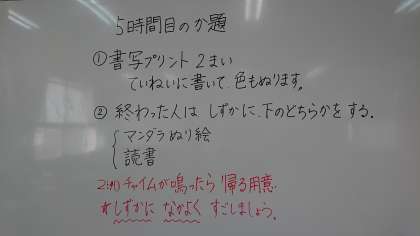 5時間目のか題
①書写プリント 2まい
ていねいに書いて、色もぬります。
② 終わった人は しずかに、下のどちらかをする。
マンダラぬり絵
読書
チャイムが鳴ったら 帰る用意。
しずかに なかよく すごしましょう。